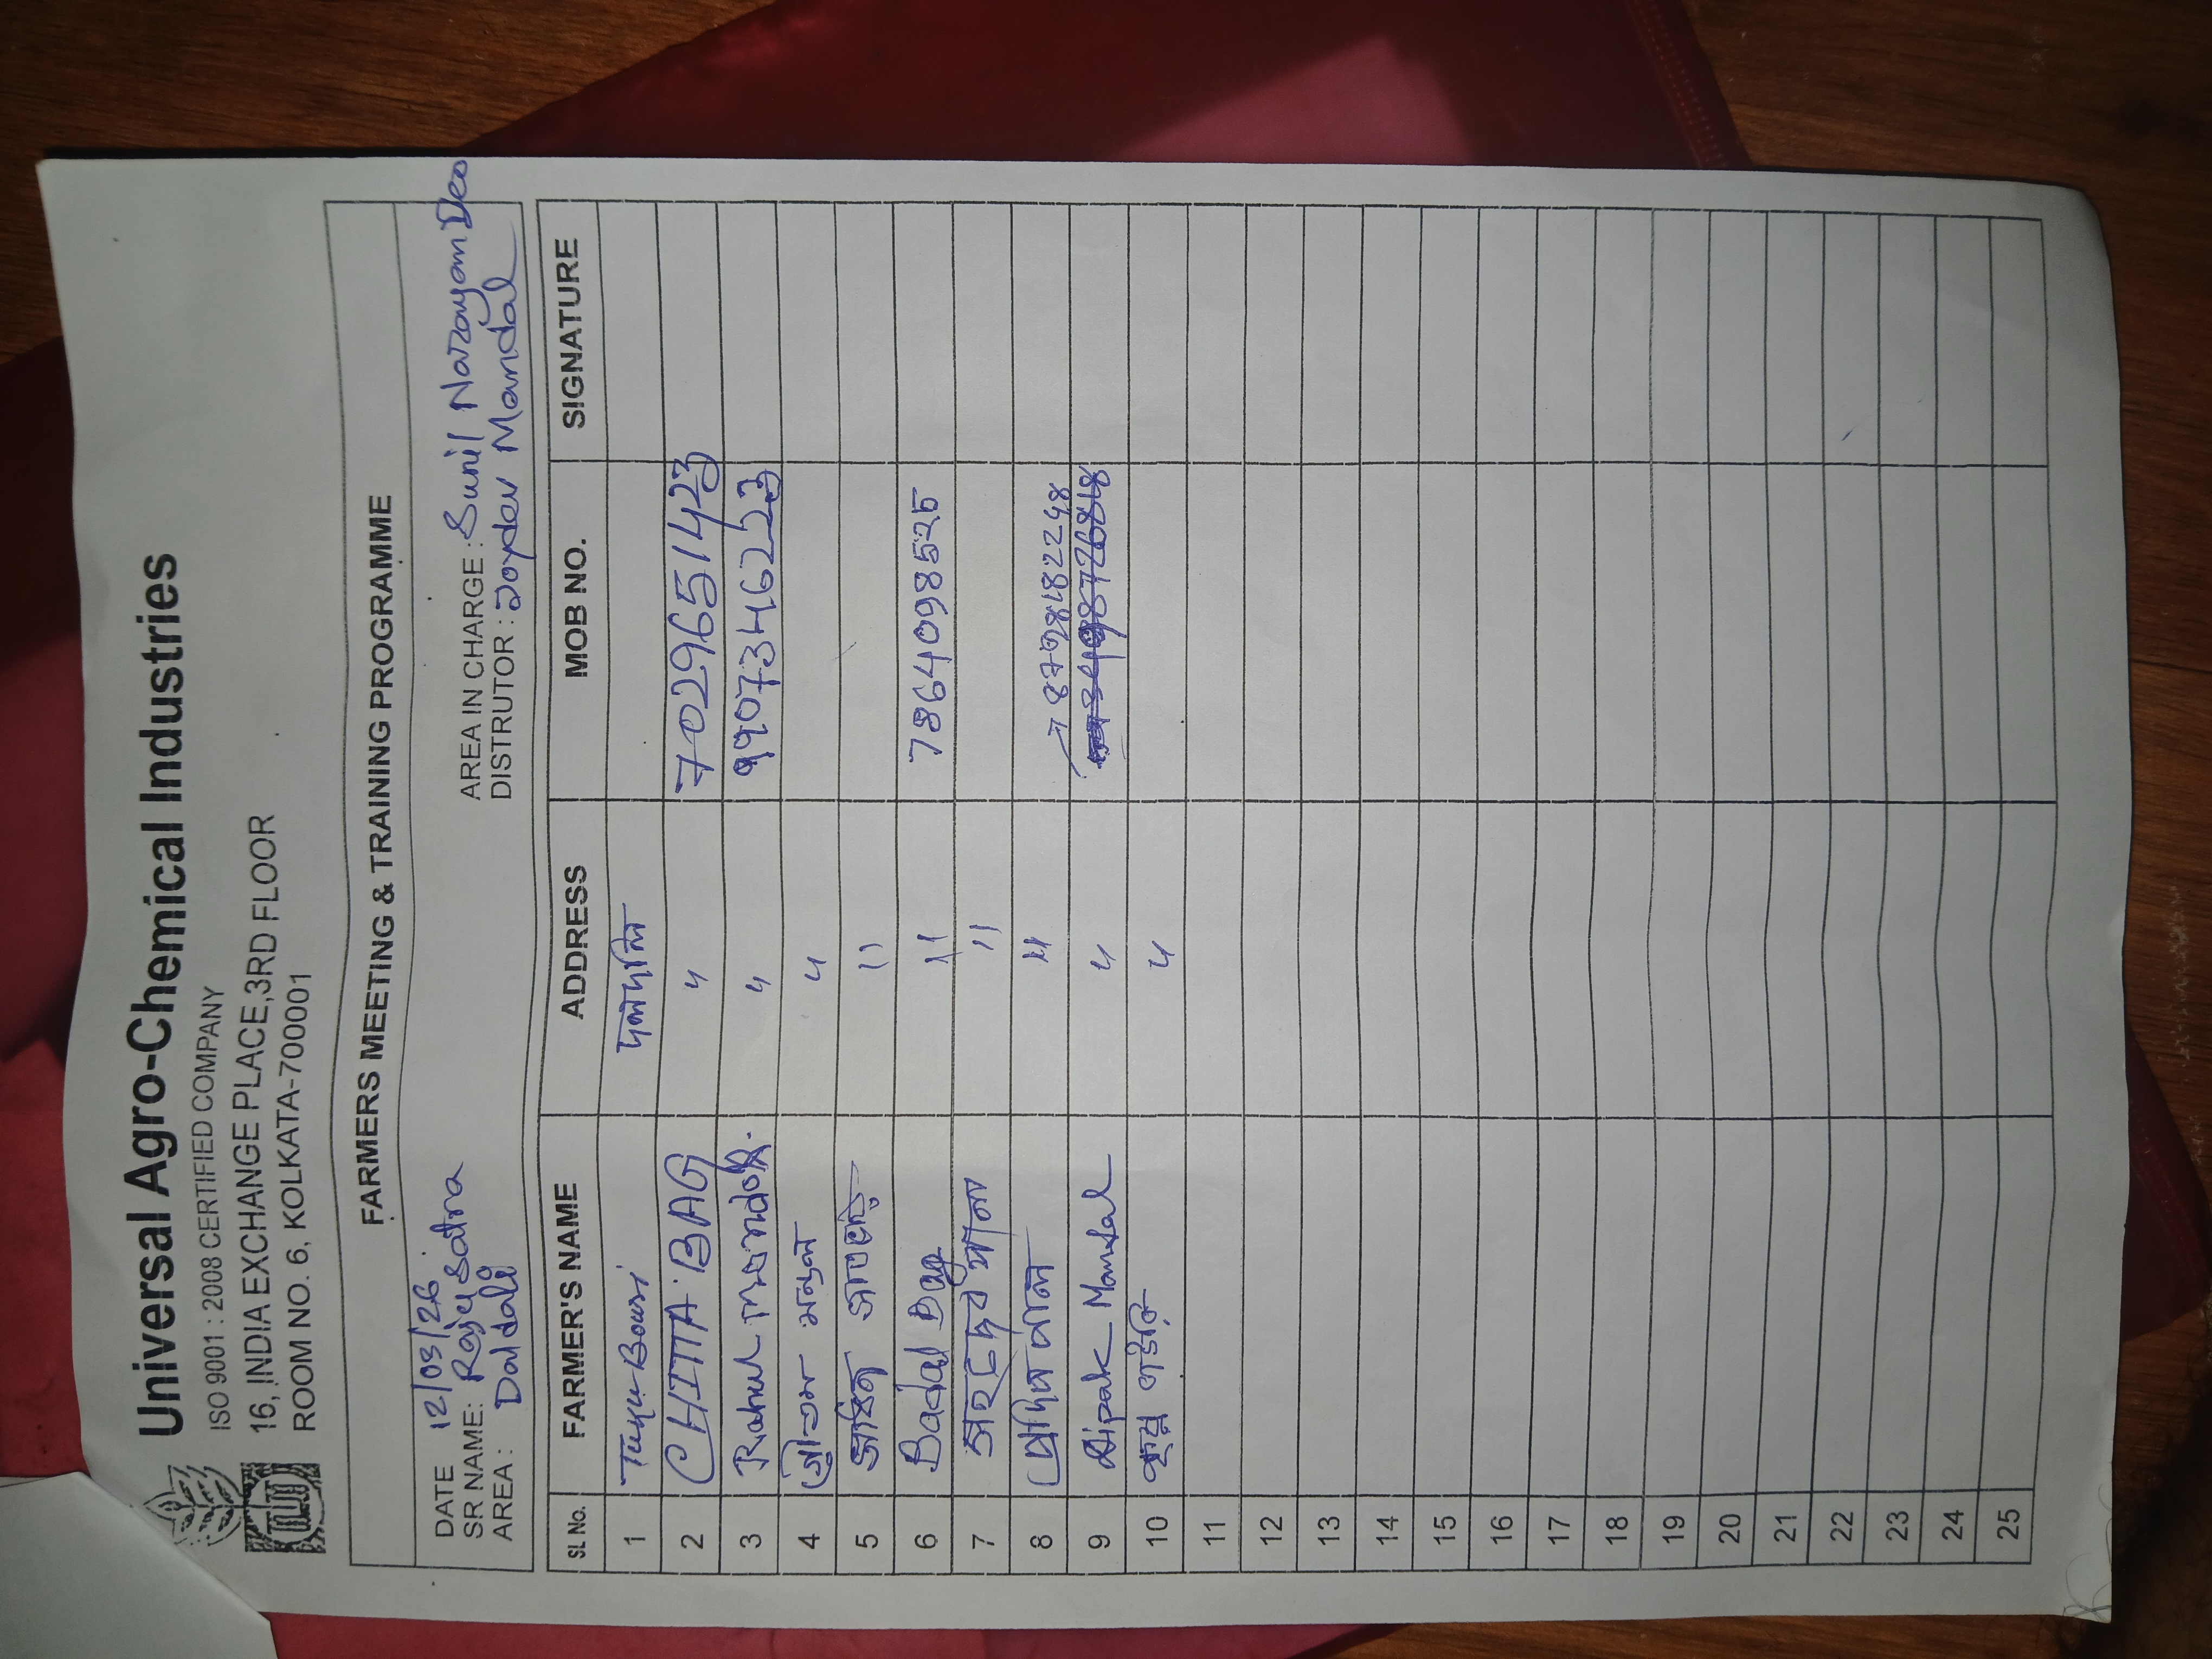 Universal Agro-Chemical Industries
ISO 9001 : 2008 CERTIFIED COMPANY
16, INDIA EXCHANGE PLACE,3RD FLOOR
ROOM NO. 6, KOLKATA-700001
FARMERS MEETING & TRAINING PROGRAMME
DATE 12/03/26
SR NAME: Raju Satra AREA IN CHARGE : Sunil Narayan Deo
AREA : Daldali DISTRUTOR : Joydev Mandal
SL No. FARMER'S NAME ADDRESS MOB NO. SIGNATURE
1 Tunu Bouri দলদলি
2 CHITTA BAG " 7029651423
3 Rahul mondal. " 9907346223
4 মন্ডল "
5 "
6 Badal Bag " 7864098525
7 সহদেব "
8 প্রদিপ পাল "
9 Dipak Mandal " 
10 বাউরি "
11
12
13
14
15
16
17
18
19
20
21
22
23
24
25